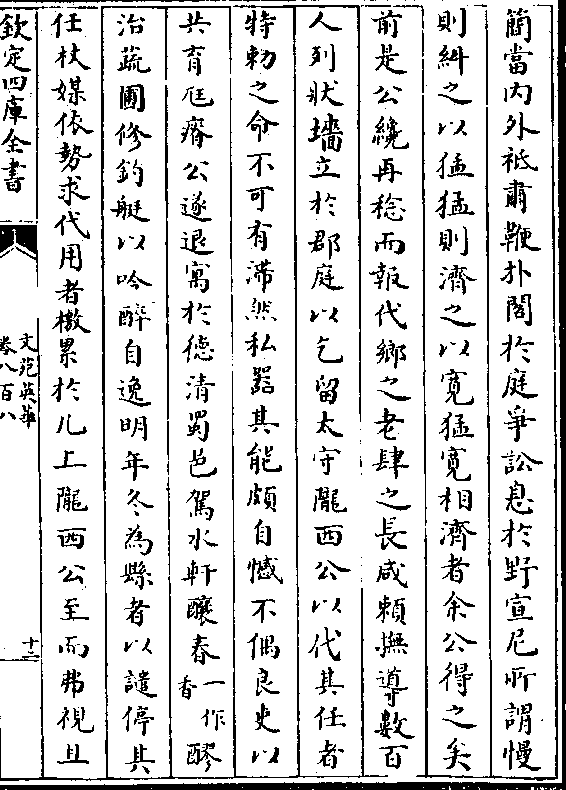 簡當内外祗肅鞭扑閣於庭爭訟息於野宣尼所謂慢
則糾之以猛猛則濟之以寛猛寛相濟者余公得之矣
前是公纔再稔而報代鄉之老肆之長咸頼撫導數百
人列狀墻立於郡庭以乞留太守隴西公以代其任者
特勅之命不可有滯然私器其能頗自憾不偶良吏以
共育尫瘠公遂退寓於徳清蜀邑駕水軒釀春一作香醪
治蔬圃修釣艇以吟醉自逸明年冬為縣者以譴停其
任杖媒依勢求代用者檄累於几上隴西公至而弗視且
欽定四庫全書
文苑英華
卷八百八
十三